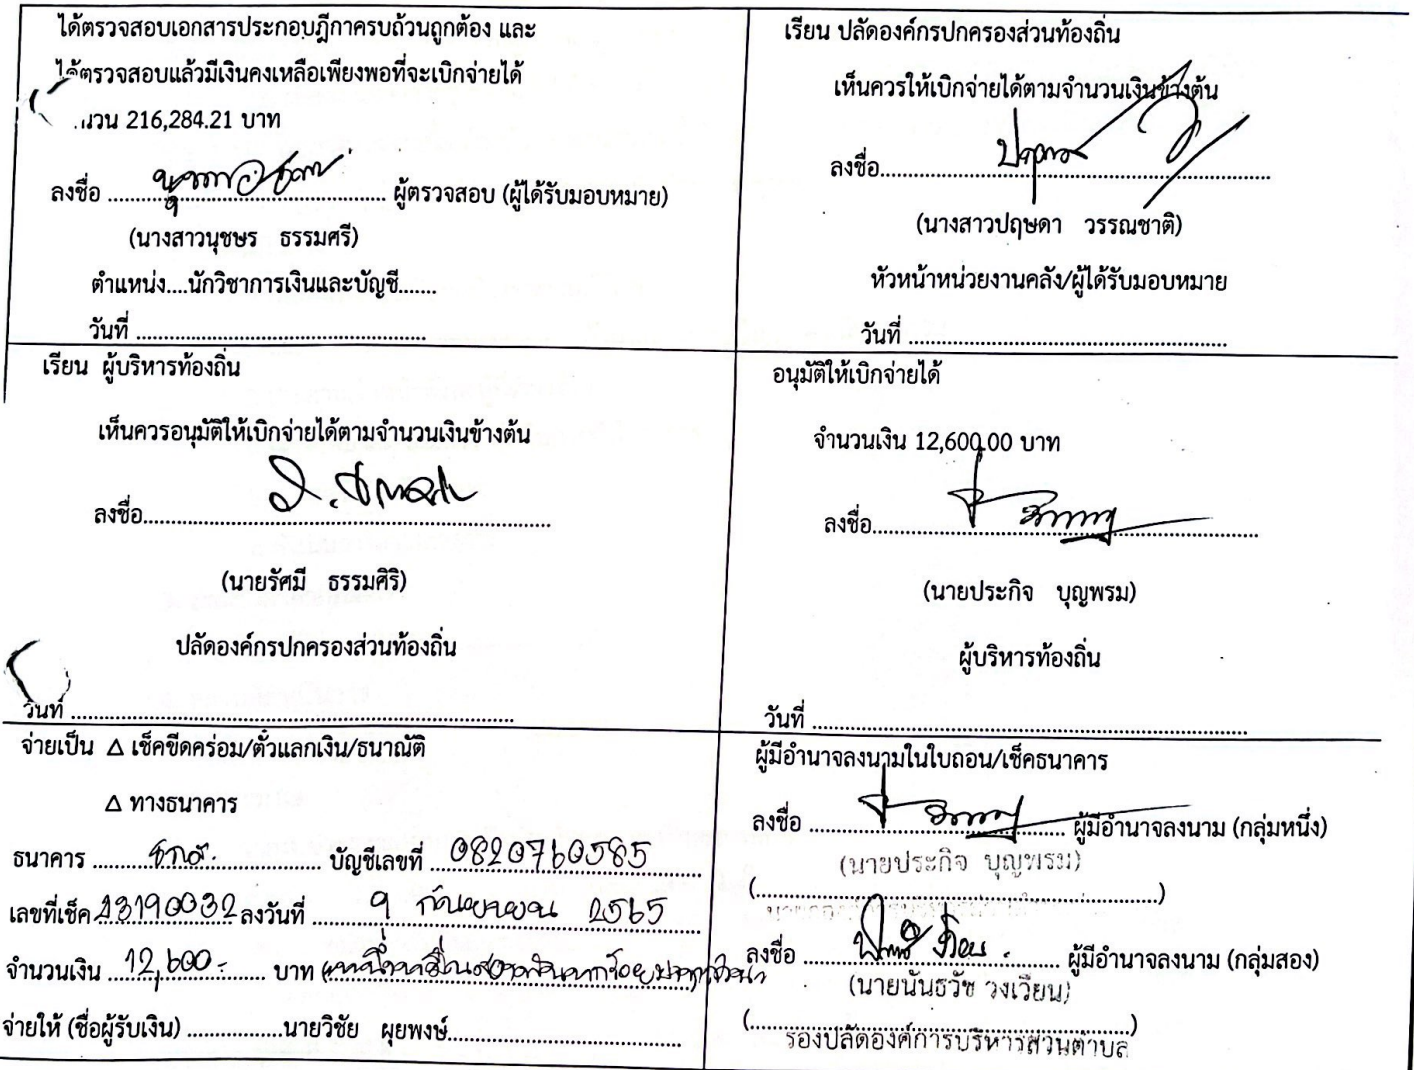 ได้ตรวจสอบเอกสารประกอบฎีกาครบถ้วนถูกต้อง และ
ได้ตรวจสอบแล้วมีเงินคงเหลือเพียงพอที่จะเบิกจ่ายได้
216,284.21 บาท
ลงชื่อ ........................ ผู้ตรวจสอบ (ผู้ได้รับมอบหมาย)
(นางสาวนุชษร ธรรมศรี)
ตำแหน่ง....นักวิชาการเงินและบัญชี.......
วันที่ ........................
เรียน ปลัดองค์กรปกครองส่วนท้องถิ่น
เห็นควรให้เบิกจ่ายได้ตามจำนวนเงินข้างต้น
ลงชื่อ........................
(นางสาวปฤษดา วรรณชาติ)
หัวหน้าหน่วยงานคลัง/ผู้ได้รับมอบหมาย
วันที่ ........................
เรียน ผู้บริหารท้องถิ่น
เห็นควรอนุมัติให้เบิกจ่ายได้ตามจำนวนเงินข้างต้น
ลงชื่อ........................
(นายรัศมี ธรรมศิริ)
ปลัดองค์กรปกครองส่วนท้องถิ่น
วันที่ ........................
อนุมัติให้เบิกจ่ายได้
จำนวนเงิน 12,600.00 บาท
ลงชื่อ........................
(นายประกิจ บุญพรม)
ผู้บริหารท้องถิ่น
วันที่ ........................
จ่ายเป็น Δ เช็คขีดคร่อม/ตั๋วแลกเงิน/ธนาณัติ
Δ ทางธนาคาร
ธนาคาร ........................ บัญชีเลขที่ 0820760585
เลขที่เช็ค 23190032 ลงวันที่ 9 กันยายน 2565
จำนวนเงิน 12,600.- บาท
จ่ายให้ (ชื่อผู้รับเงิน) ................นายวิชัย ผุยพงษ์........................
ผู้มีอำนาจลงนามในใบถอน/เช็คธนาคาร
ลงชื่อ ........................ ผู้มีอำนาจลงนาม (กลุ่มหนึ่ง)
(นายประกิจ บุญพรม)
(........................)
ลงชื่อ ........................ ผู้มีอำนาจลงนาม (กลุ่มสอง)
(นายนันธวัช วงเวียน)
(........................)
รองปลัดองค์การบริหารส่วนตำบล